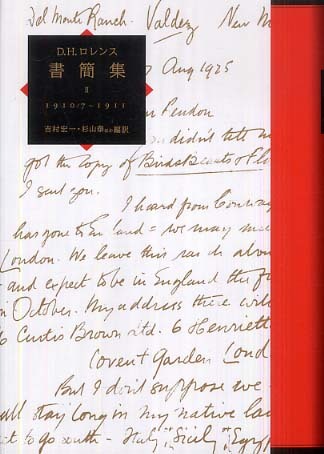 Del Monte Ranch. Valdez New M
Aug 1925
D.H.ロレンス
書簡集
II
1910/7〜1911
吉村宏一・杉山泰ほか編訳
didn't tell m
got the copy of Birds Beasts & Flo
I sent you.
I heard from Conway
has gone to England = we may
London. We leave this ranch abou
and expect to be in England the fi
in October. My address there will
Curtis Brown Ltd. 6 Henriett
Covent Garden Lond
But I don't suppose we
all stay long in my native la
t to go south - Italy, Sicily, or Egyp